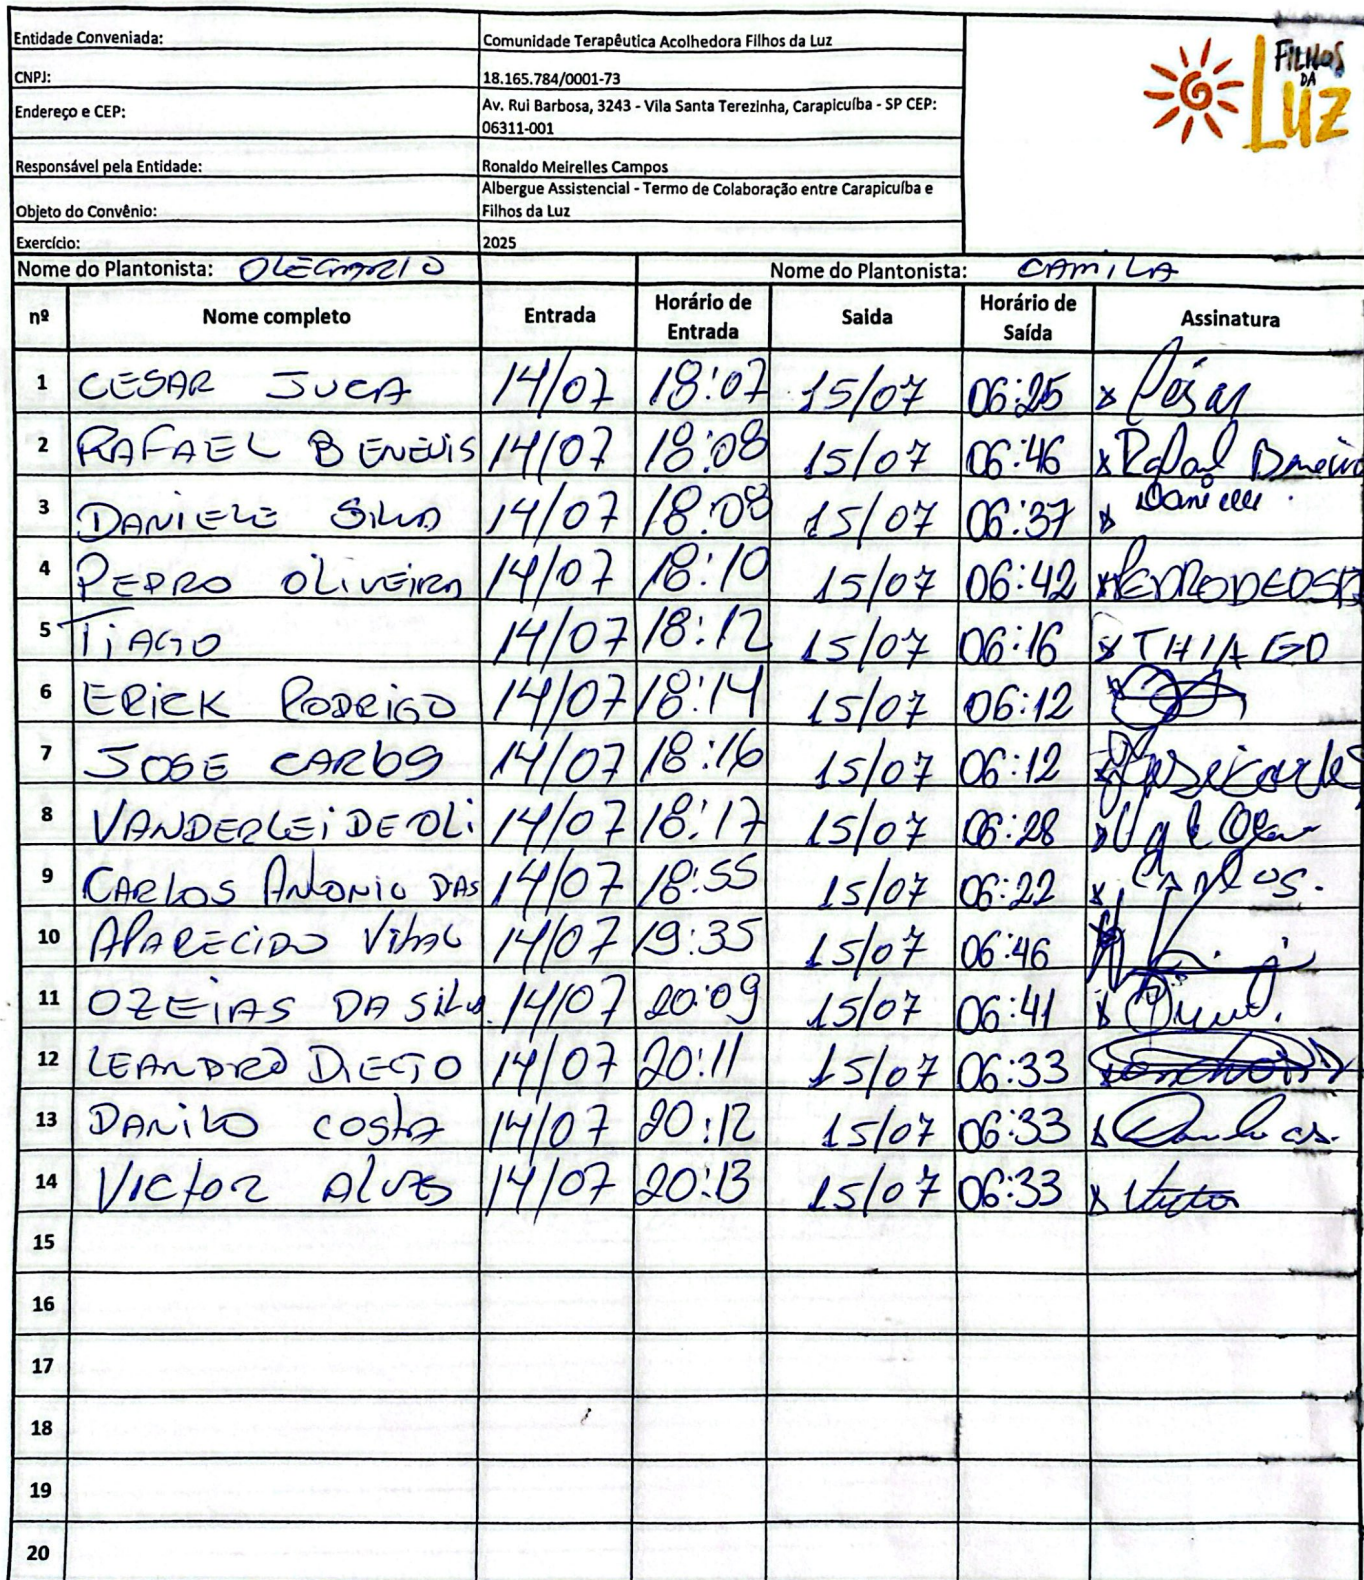 FILHOS
DA
LUZ
Entidade Conveniada: Comunidade Terapêutica Acolhedora Filhos da Luz
CNPJ: 18.165.784/0001-73
Endereço e CEP: Av. Rui Barbosa, 3243 - Vila Santa Terezinha, Carapicuíba - SP CEP:
06311-001
Responsável pela Entidade: Ronaldo Meirelles Campos
Objeto do Convênio: Albergue Assistencial - Termo de Colaboração entre Carapicuíba e
Filhos da Luz
Exercício: 2025
Nome do Plantonista: OLEGARIO Nome do Plantonista: CAMILA
nº Nome completo Entrada Horário de Entrada Saida Horário de Saída Assinatura
1 CESAR JUCA 14/07 18:07 15/07 06:25 x César
2 RAFAEL BENEVIS 14/07 18:08 15/07 06:46 x Rafael
3 DANIELE SILVA 14/07 18:08 15/07 06:37 x Danielle
4 PEDRO OLIVEIRA 14/07 18:10 15/07 06:42 x
5 TIAGO 14/07 18:12 15/07 06:16 x THIAGO
6 ERICK RODRIGO 14/07 18:14 15/07 06:12 x
7 JOSE CARLOS 14/07 18:16 15/07 06:12 x Jose carlos
8 VANDERLEI DE OLI 14/07 18:17 15/07 06:28 x
9 CARLOS ANTONIO DAS 14/07 18:55 15/07 06:22 x Carlos.
10 APARECIDO VITAL 14/07 19:35 15/07 06:46 x
11 OZEIAS DA SILVA 14/07 20:09 15/07 06:41 x
12 LEANDRO DIEGO 14/07 20:11 15/07 06:33 x
13 DANILO COSTA 14/07 20:12 15/07 06:33 x
14 VICTOR ALVES 14/07 20:13 15/07 06:33 x Victor
15
16
17
18
19
20